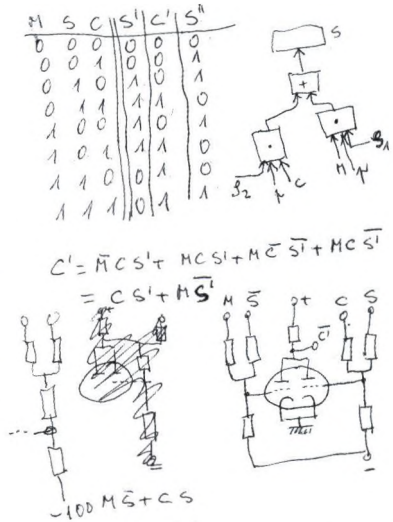 M S C S' C' S''
0 0 0 0 0 0
0 0 1 0 0 1
0 1 0 1 0 1
0 1 1 1 1 0
1 0 0 1 0 1
1 0 1 1 1 0
1 1 0 0 1 0
1 1 1 0 1 1
S
+
C
M
C' = M̄ C S' + M C S' + M C̄ S̄' + M C S̄'
= C S' + M S̄'
+
M S̄ + C S
C̄'
-
-100 M S̄ + C S